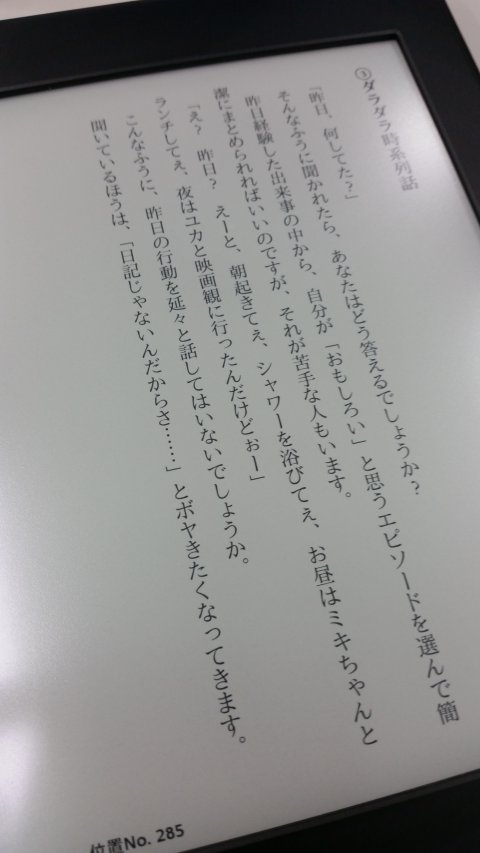 ①ダラダラ時系列話
「昨日、何してた？」
そんなふうに聞かれたら、あなたはどう答えるでしょうか？
昨日経験した出来事の中から、自分が「おもしろい」と思うエピソードを選んで簡
潔にまとめられればいいのですが、それが苦手な人もいます。
「え？　昨日？　えーと、朝起きてぇ、シャワーを浴びてぇ、お昼はミキちゃんと
ランチしてぇ、夜はユカと映画観に行ったんだけどぉー」
こんなふうに、昨日の行動を延々と話してはいないでしょうか。
聞いているほうは、「日記じゃないんだからさ……」とボヤきたくなってきます。
位置No. 285